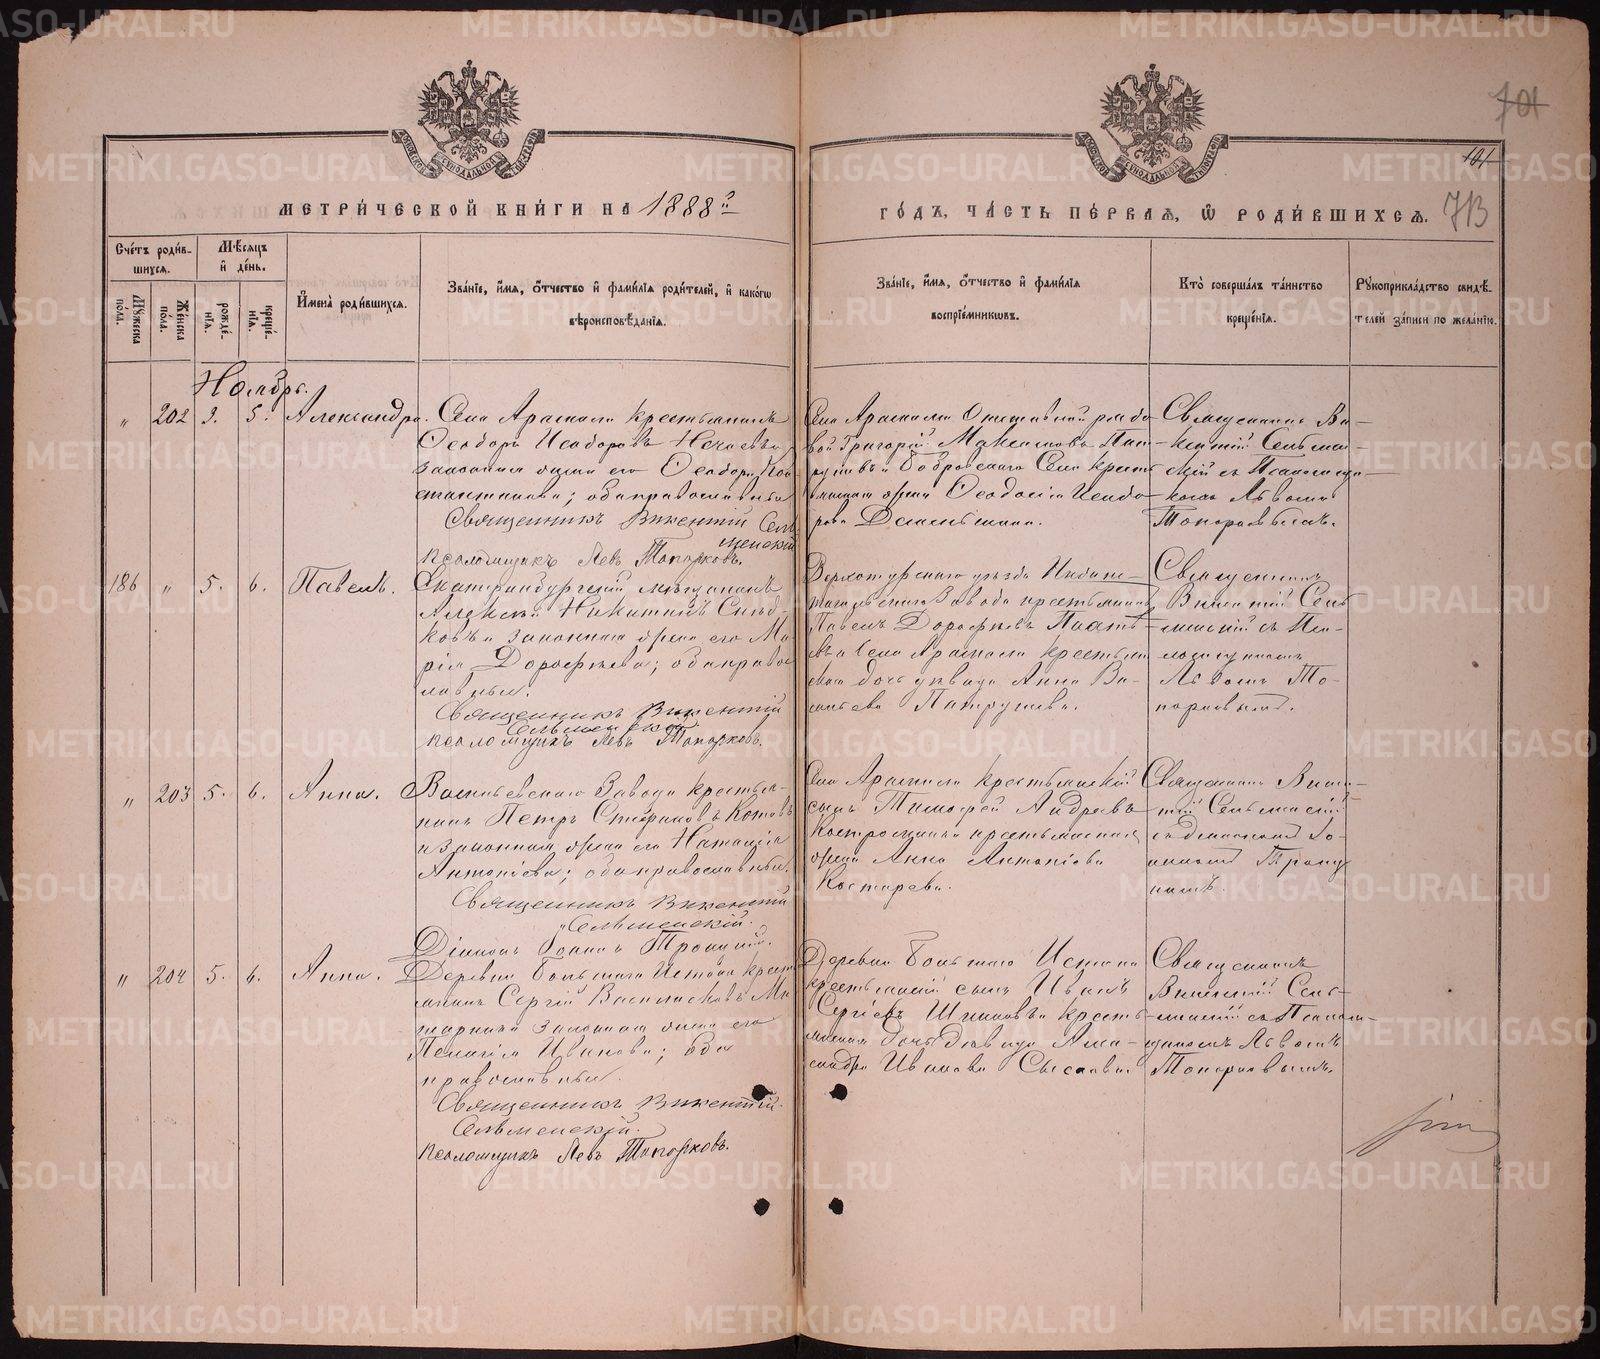 МЕТРИ́ЧЕСКОЙ КНИ́ГИ НА 1888 й
ГО́ДЪ, ЧА́СТЬ ПЕ́РВАЯ, Ѿ РОДИ́ВШИХСЯ.
701
101
713
Сче́тъ роди́в-
шихся.
Мѣ́сяцъ
и҆ де́нь.
Мꙋ́жеска
по́ла.
Же́нска
по́ла.
рожде́-
нїѧ.
креще́-
нїѧ.
И҆мена̀ роди́вшихсѧ.
Зва́нїе, и҆́мѧ, ѻ҆́тчество и҆ фами́лїѧ роди́телей, и҆ како́гѡ
вѣроисповѣ́данїѧ.
Зва́нїе, и҆́мѧ, ѻ҆́тчество и҆ фами́лїѧ
воспрїе́мникѡвъ.
Кто̀ соверша́лъ та́инство
креще́нїѧ.
Рꙋкоприкла́дство свидѣ́-
телей за́писи по жела́нїю.
Ноябрь.
" 202 3. 5. Александра.
Села Арамили крестьянинъ
Ѳеодоръ Исидоровъ Нечаевъ и
законная жена его
обаправославные
Священникъ Викентій Сель-
менскій
Псаломщикъ Левъ Топорковъ.
Села Арамили Отставной рядо-
вой Григорій Максимовъ Пат-
рушевъ и Бобровскаго Села кресть-
янская жена Ѳеодосія Исидо-
рова
Священникъ Ви-
кентій Сельмен-
скій съ Псаломщи-
комъ Львомъ
Топорковымъ.
186 " 5. 6. Павелъ.
Екатеринбургскій мѣщанинъ
Алексѣй Никитинъ
и законная жена его Ма-
рія Дороѳеева; обаправос-
лавные.
Священникъ Викентій
Сельменскій.
Псаломщикъ Левъ Топорковъ.
Верхотурскаго уѣзда Нижне-
тагильскаго Завода крестьянинъ
Павелъ Дороѳеевъ
и Села Арамили крестьян-
ская дочь дѣвица Анна Ва-
сильева Патрушева.
Священникъ
Викентій Сель-
менскій съ Пса-
ломщикомъ
Львомъ То-
порковымъ.
" 203 5. 6. Анна.
Васильевскаго Завода крестья-
нинъ Петръ Стефановъ Котовъ
и законная жена его Наталія
Антоніева; обаправославные.
Священникъ Викентій
Сельменскій.
Діаконъ Іоаннъ Троицкій.
Села Арамили крестьянскій
сынъ Тимоѳей Андреевъ
и крестьянская
жена Анна Антоніева
Костарева.
Священникъ Викен-
тій Сельменскій
съ Діакономъ Іо-
анномъ Троиц-
кимъ.
" 204 5. 6. Анна.
Деревни Большаго Истока крест-
янинъ Сергій Василисковъ
и законная жена его
Пелагія Иванова; оба
православные.
Священникъ Викентій
Сельменскій.
Псаломщикъ Левъ Топорковъ.
Деревни Большаго Истока
крестьянскій сынъ Иванъ
Сергіевъ и кресть-
янская дочь дѣвица Алек-
сандра Иванова
Священникъ
Викентій Сель-
менскій съ Псалом-
щикомъ Львомъ
Топорковымъ.
METRIKI.GASO-URAL.RU